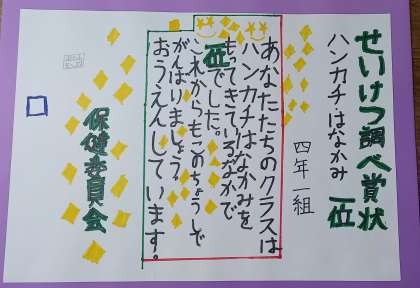 せいけつ調べ賞状
ハンカチ・はなかみ 一位
四年一組
あなたたちのクラスは
ハンカチはなかみを
もってきているなかで
一位でした。
これからもこのちょうしで
がんばりましょう。
おうえんしています。
保健委員会